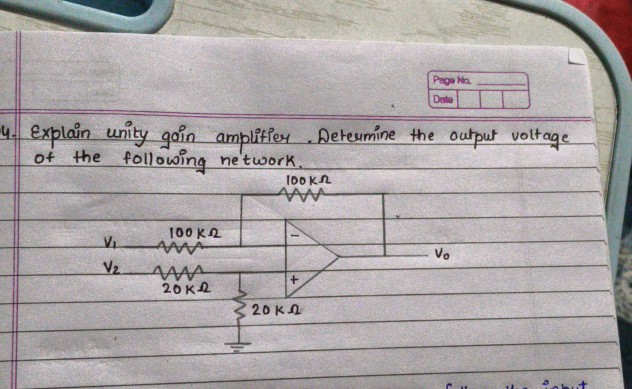 Page No.
Date
4. Explain unity gain amplifier. Determine the output voltage
of the following network.
100 KΩ
100 KΩ
V1
-
Vo
V2
+
20 KΩ
20 KΩ
input